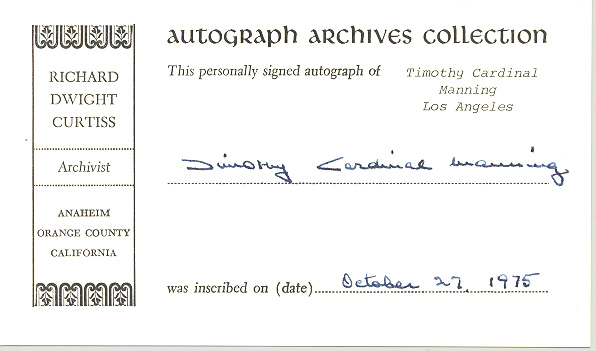 RICHARD
DWIGHT
CURTISS
Archivist
ANAHEIM
ORANGE COUNTY
CALIFORNIA
AUTOGRAPH ARCHIVES COLLECTION
This personally signed autograph of Timothy Cardinal
Manning
Los Angeles
Timothy Cardinal Manning
was inscribed on (date) October 27, 1975